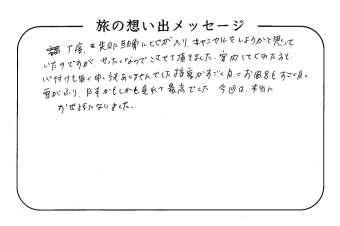 旅の想い出メッセージ
丁度、先月に助骨にヒビが入り、キャンセルをしようかと思って
いたのですが、せったくなのでこさせて頂きました。案内してくれた方も
心付けも無く申し訳ありませんでした接客がすごく良くお風呂もすごく良。
雪がふり、日本かもしかも見れて最高でした 今回は、本当に
お世話になりました。